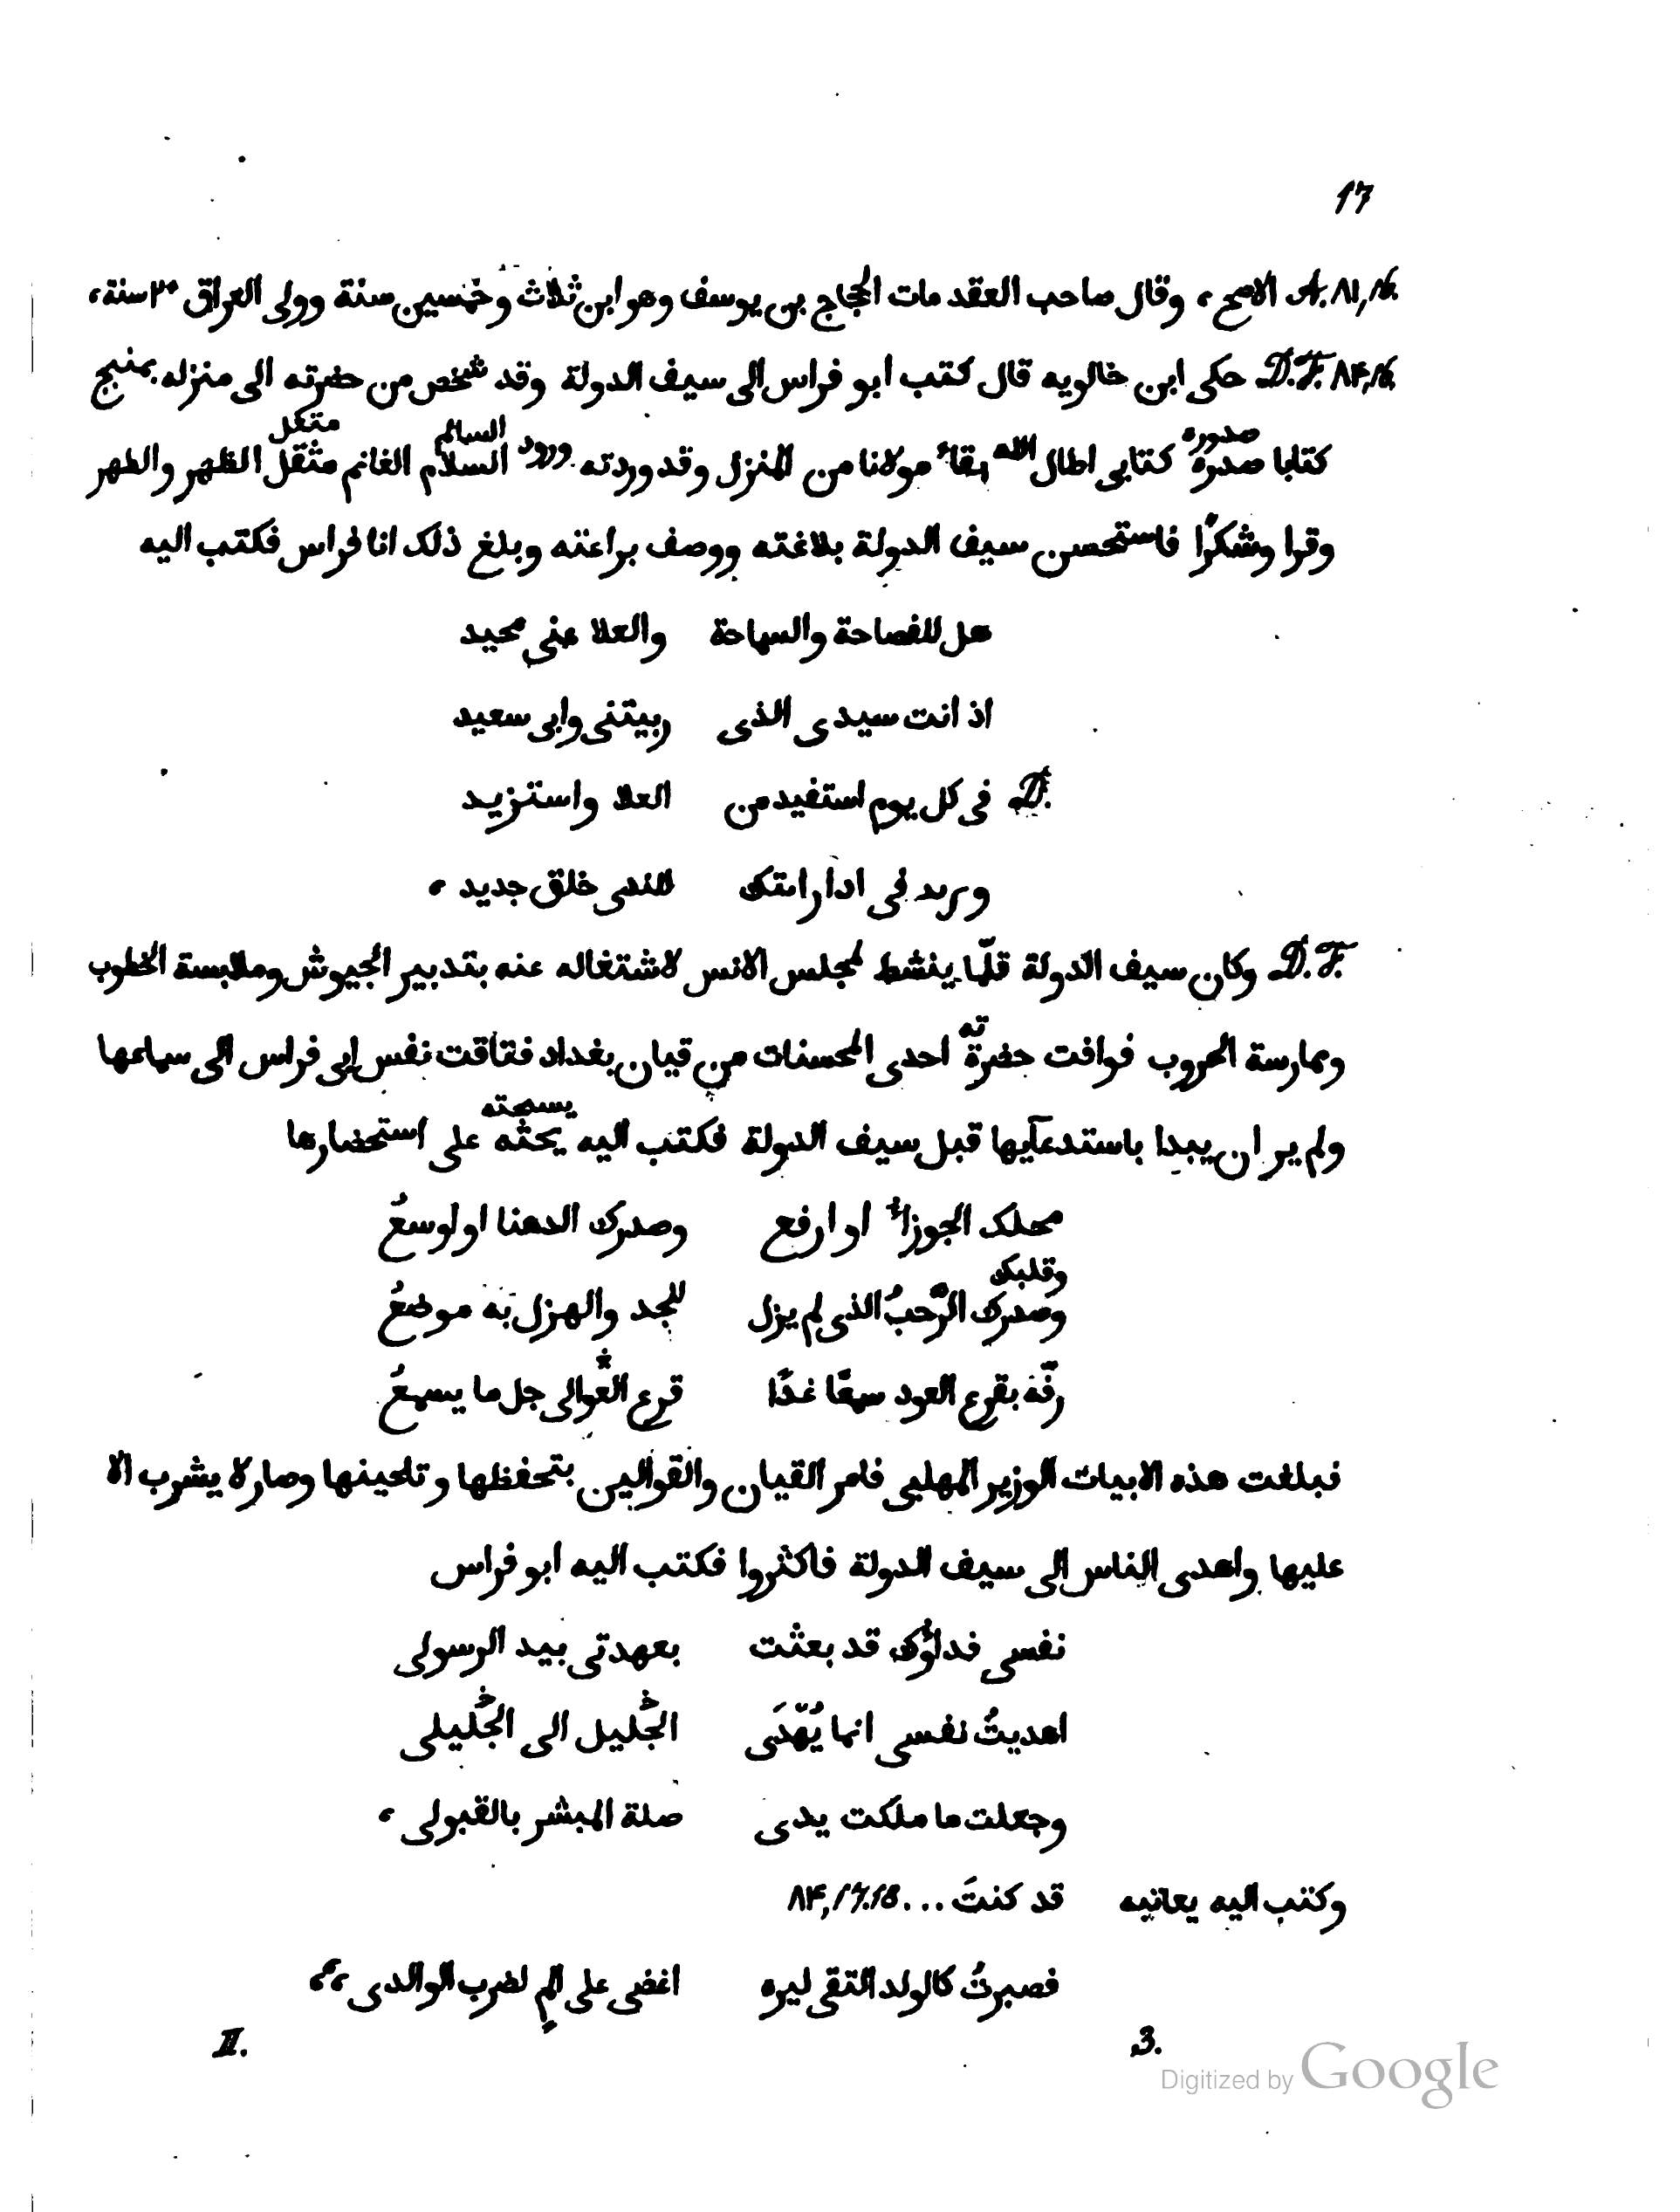 17
A. ٨١,١٥. الاصح، وقال صاحب العقد مات الحجاج بن يوسف وهو ابن ثلاث وخمسين سنة وولى العراق ٢٠ سنة،
D.F. ٨٤,١٥. حكى ابن خالويه قال كتب ابو فراس الى سيف الدولة وقد شخص من حضرته الى منزله بمنبج
صدوره السالم متكل
كتابا صدره كتابى اطال الله بقاء مولانا من المنزل وقد وردته ورود السلام الغانم مثقل الظهر والظهر
وقرا وشكرًا فاستحسن سيف الدولة بلاغته ووصف براعته وبلغ ذلك انا فراس فكتب اليه
هل للفصاحة والسماحة والعلا عنى محيد
اذ انت سيدى الذى ربيتنى وابى سعيد
D. فى كل يوم استفيد من العلا واستزيد
ويريد فى اذا رايتك للندى خلق جديد،
D.F. وكان سيف الدولة قلّما ينشط لمجلس الانس لاشتغاله عنه بتدبير الجيوش وملابسة الخطوب
ته
وممارسة الحروب فوافت حضرة احدى المحسنات من قيان بغداد فتاقت نفس ابى فراس الى سماعها
ولم ير ان يبدا باستدعآيها قبل سيف الدولة فكتب اليه يحثه على استحضارها
محلك الجوزاء او ارفع وصدرك الدهنا او اوسعُ
وقلبك
وصدرك الرَّحبُ الذى لم يزل للجد والهزل به موضعُ
رفّه بقرع العود سمعًا غدًا قرع العوالى جل ما يسمعُ
فبلغت هذه الابيات الوزير المهلبى فامر القيان والقوالين بتحفظها وتلحينها وصار لا يشرب الا
عليها واهدى الناس الى سيف الدولة فاكثروا فكتب اليه ابو فراس
نفسى فداؤك قد بعثت بعهدتى بيد الرسولى
اهديتُ نفسى انما يُهْدَى الجليل الى الجليلى
وجعلت ما ملكت يدى صلة المبشر بالقبولى،
وكتب اليه يعاتبه قد كنتَ ... ٨٤,١٧.١٨
فصبرتُ كالولد التقى لبره اغضى على الم لضرب الوالدى،،
II. 3.
Digitized by Google